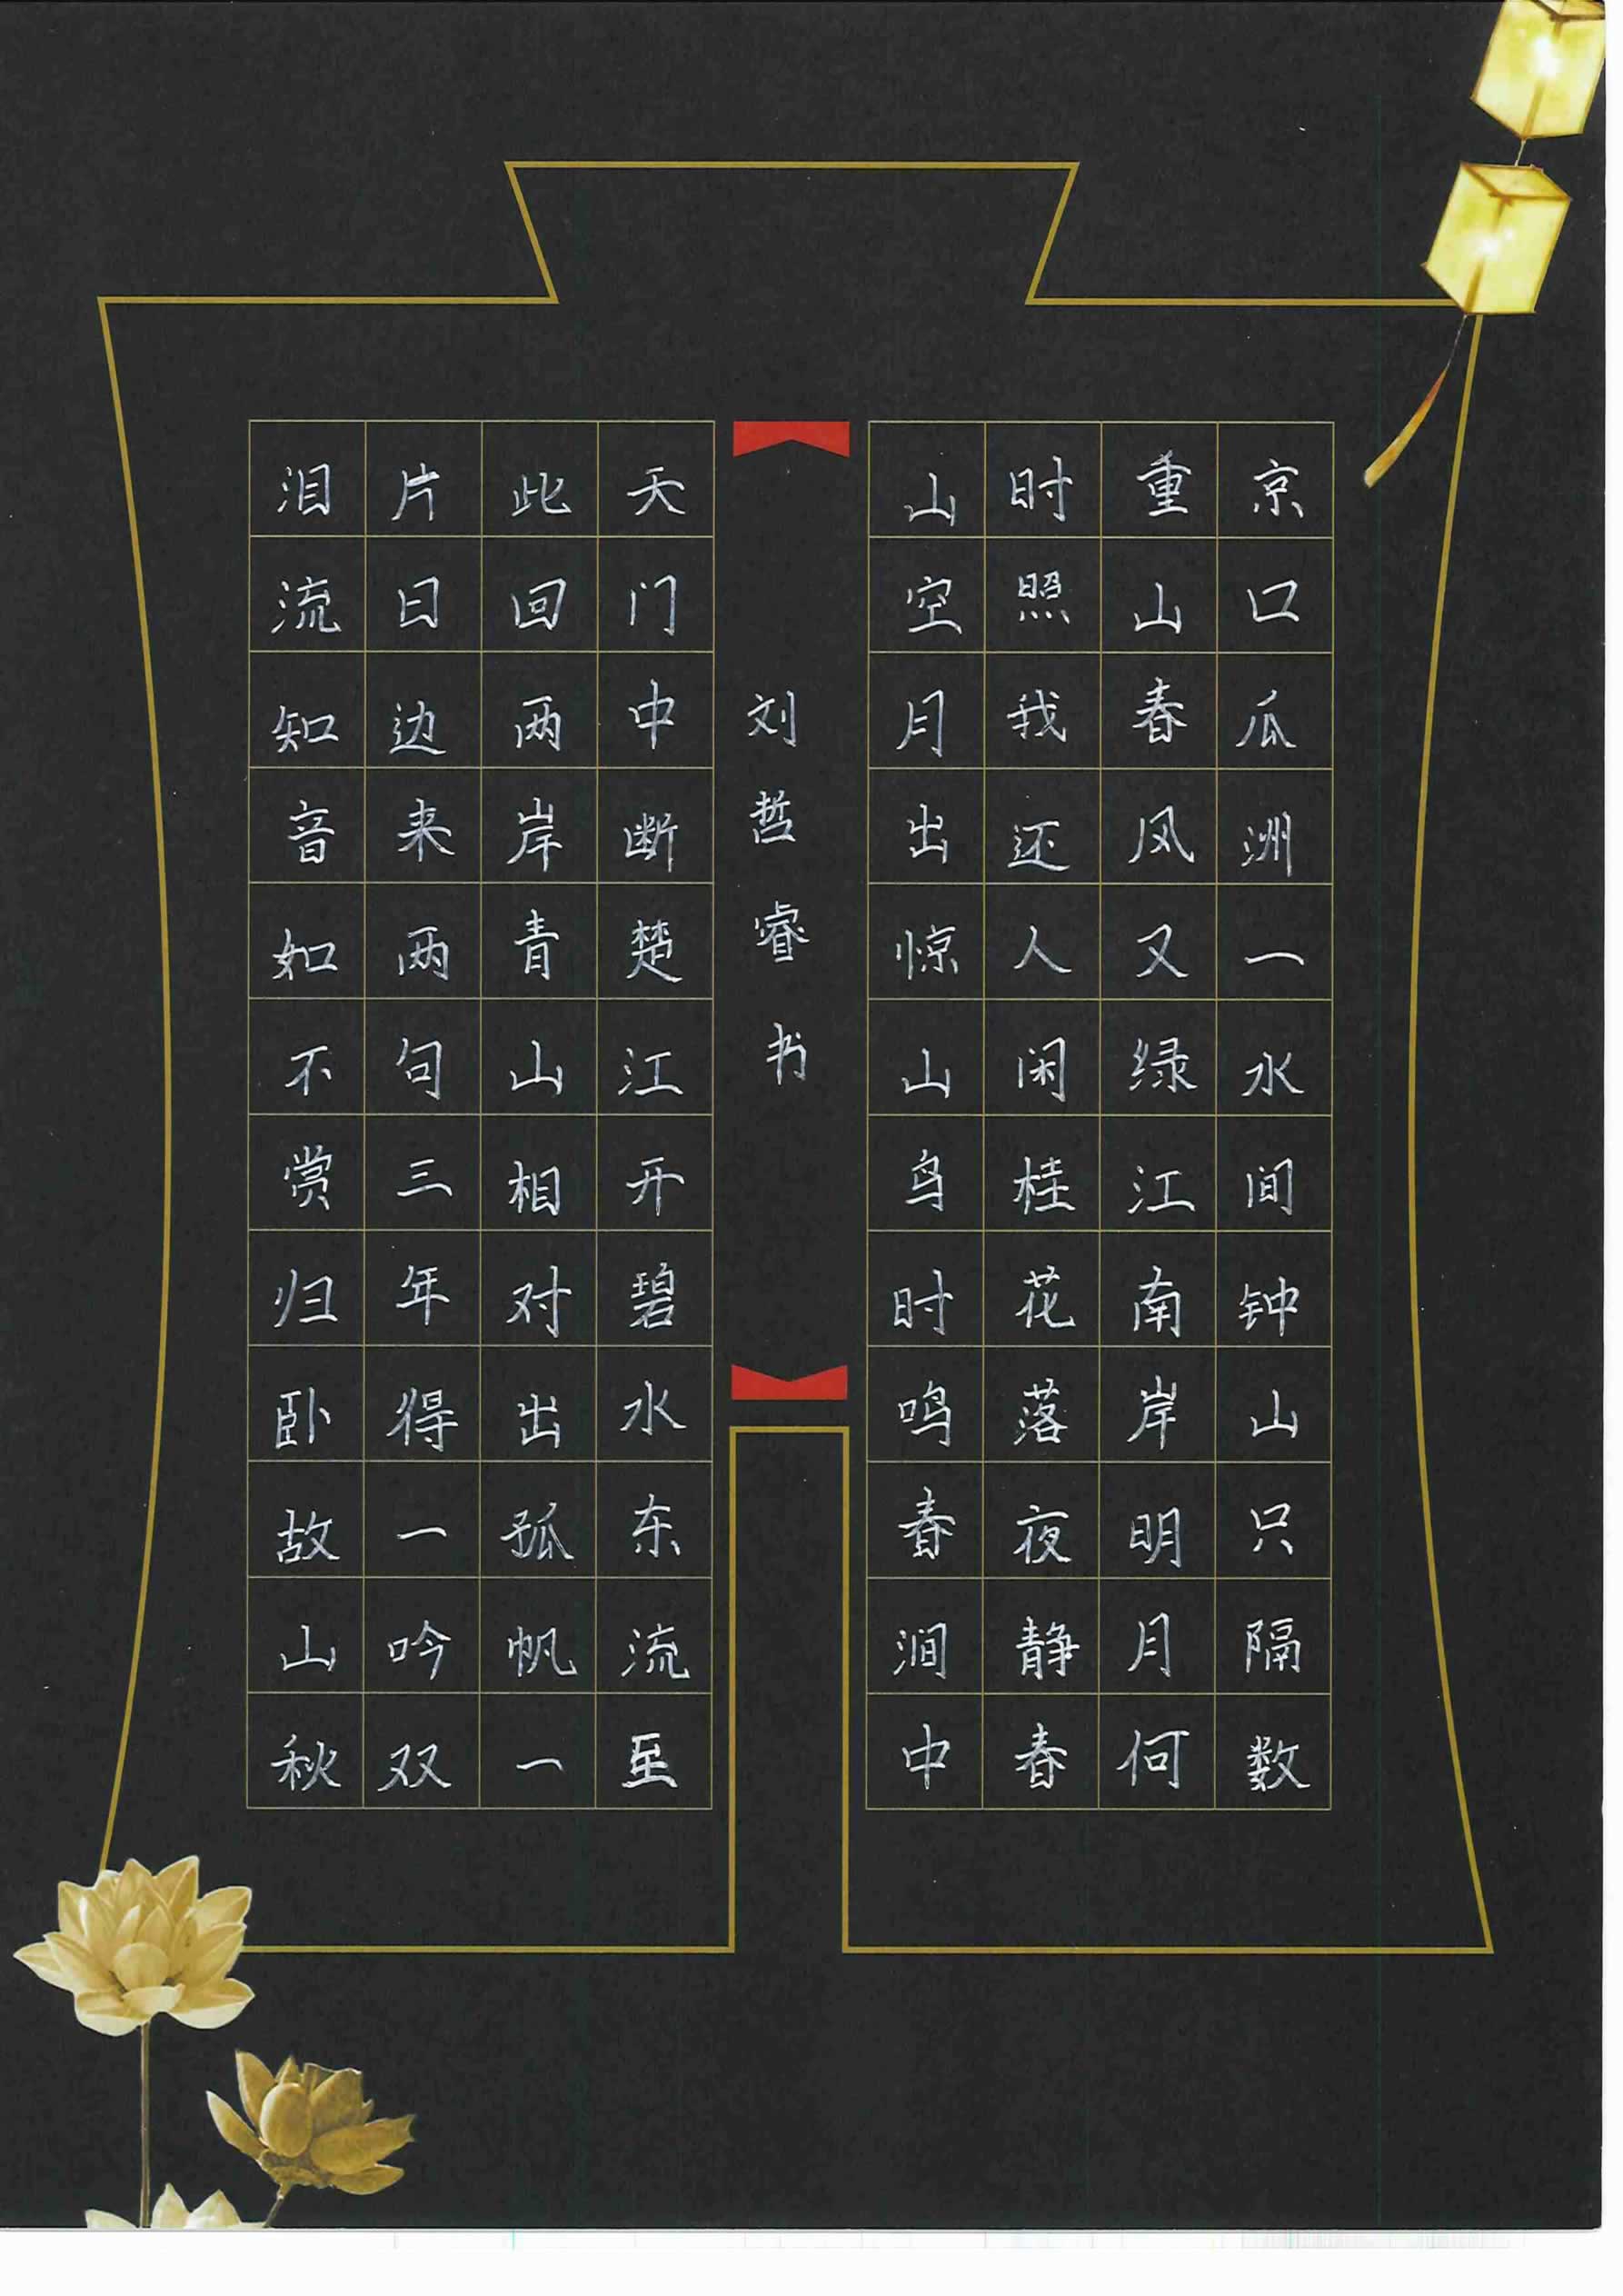 京口瓜洲一水间钟山只隔数
重山春风又绿江南岸明月何
时照我还人闲桂花落夜静春
山空月出惊山鸟时鸣春涧中
刘哲睿书
天门中断楚江开碧水东流至
此回两岸青山相对出孤帆一
片日边来两句三年得一吟双
泪流知音如不赏归卧故山秋